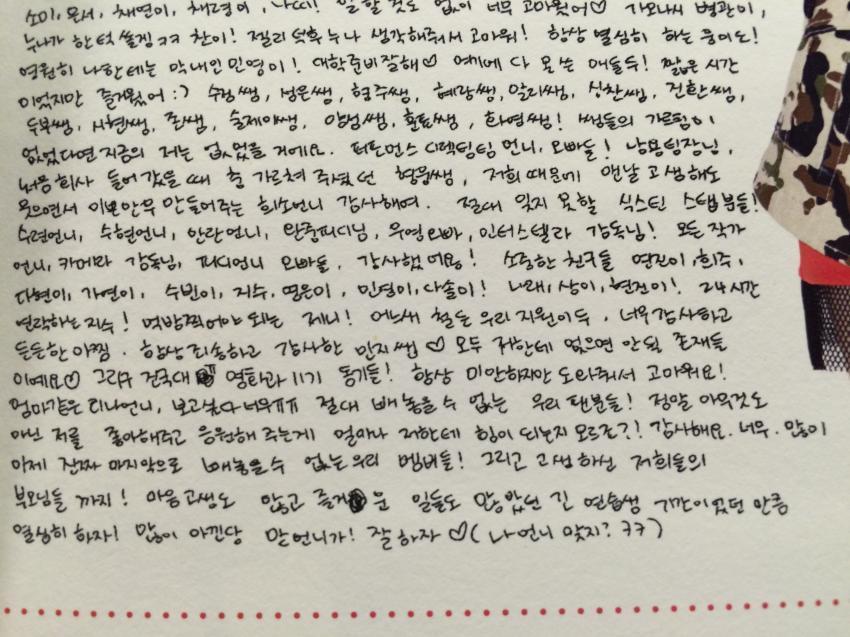 소미, 은서, 채연이, 채령이, 나띠! 말할 것도 없이 너무 고마웠어♡ 가오나시 병관이,
누나가 한턱 쏠게 ㅋㅋ 찬이! 젤리 덕후 누나 생각해줘서 고마워! 항상 열심히 하는 웅이도!
영원히 나한테는 막내인 민영이! 대학준비잘해♡ 여기에 다 못 쓴 애들두! 짧은 시간
이었지만 즐거웠어 :) 수정쌤, 성은쌤, 형주쌤, 혜랑쌤, 일리쌤, 성찬쌤, 진환쌤,
두부쌤, 시현쌤, 존쌤, 술제이쌤, 양성쌤, 효트쌤, 화영쌤! 쌤들의 가르침이
없었다면 지금의 저는 없었을 거에요. 퍼포먼스 디렉팅팀 언니, 오빠들! 남용팀장님,
처음 회사 들어 갔을 때 춤 가르쳐 주셨던 형웅쌤, 저희 때문에 맨날 고생해도
웃으면서 이쁜안무 만들어주는 희소언니 감사해여. 절대 잊지 못할 식스틴 스탭분들!
수련언니, 수현언니, 안란언니, 완종피디님, 우영오빠, 인터스텔라 감독님! 모든 작가
언니, 카메라 감독님, 피디언니 오빠들, 감사했어요! 소중한 친구들 연진이, 희주,
다현이, 가연이, 수빈이, 지수, 명은이, 민경이, 다솔이! 나래, 상이, 현진이! 24시간
연락하는 지수! 먹방찍어야 되는 제니! 어느새 철든 우리 지원이두, 너무감사하고
든든한 아찜. 항상 죄송하고 감사한 민지쌤♡ 모두 저한테 없으면 안될 존재들
이에요♡ 그리구 건국대 영화과 11기 동기들! 항상 미안하지만 도와줘서 고마워요!
엄마같은 리나언니, 보고싶다 너무ㅠㅠ 절대 빼놓을 수 없는 우리 팬분들! 정말 아무것도
아닌 저를 좋아해주고 응원해 주는게 얼마나 저한테 힘이 되는지 모르죠?! 감사해요. 너무. 많이
이제 진짜 마지막으로 빼놓을수 없는 우리 멤버들! 그리고 고생하신 저희들의
부모님들 까지! 마음고생도 많고 즐거운 일들도 많았던 긴 연습생 기간이 있던 만큼
열심히 하자! 많이 아낀당 맏언니가! 잘 하자 ♡ (나 언니 맞지? ㅋㅋ)